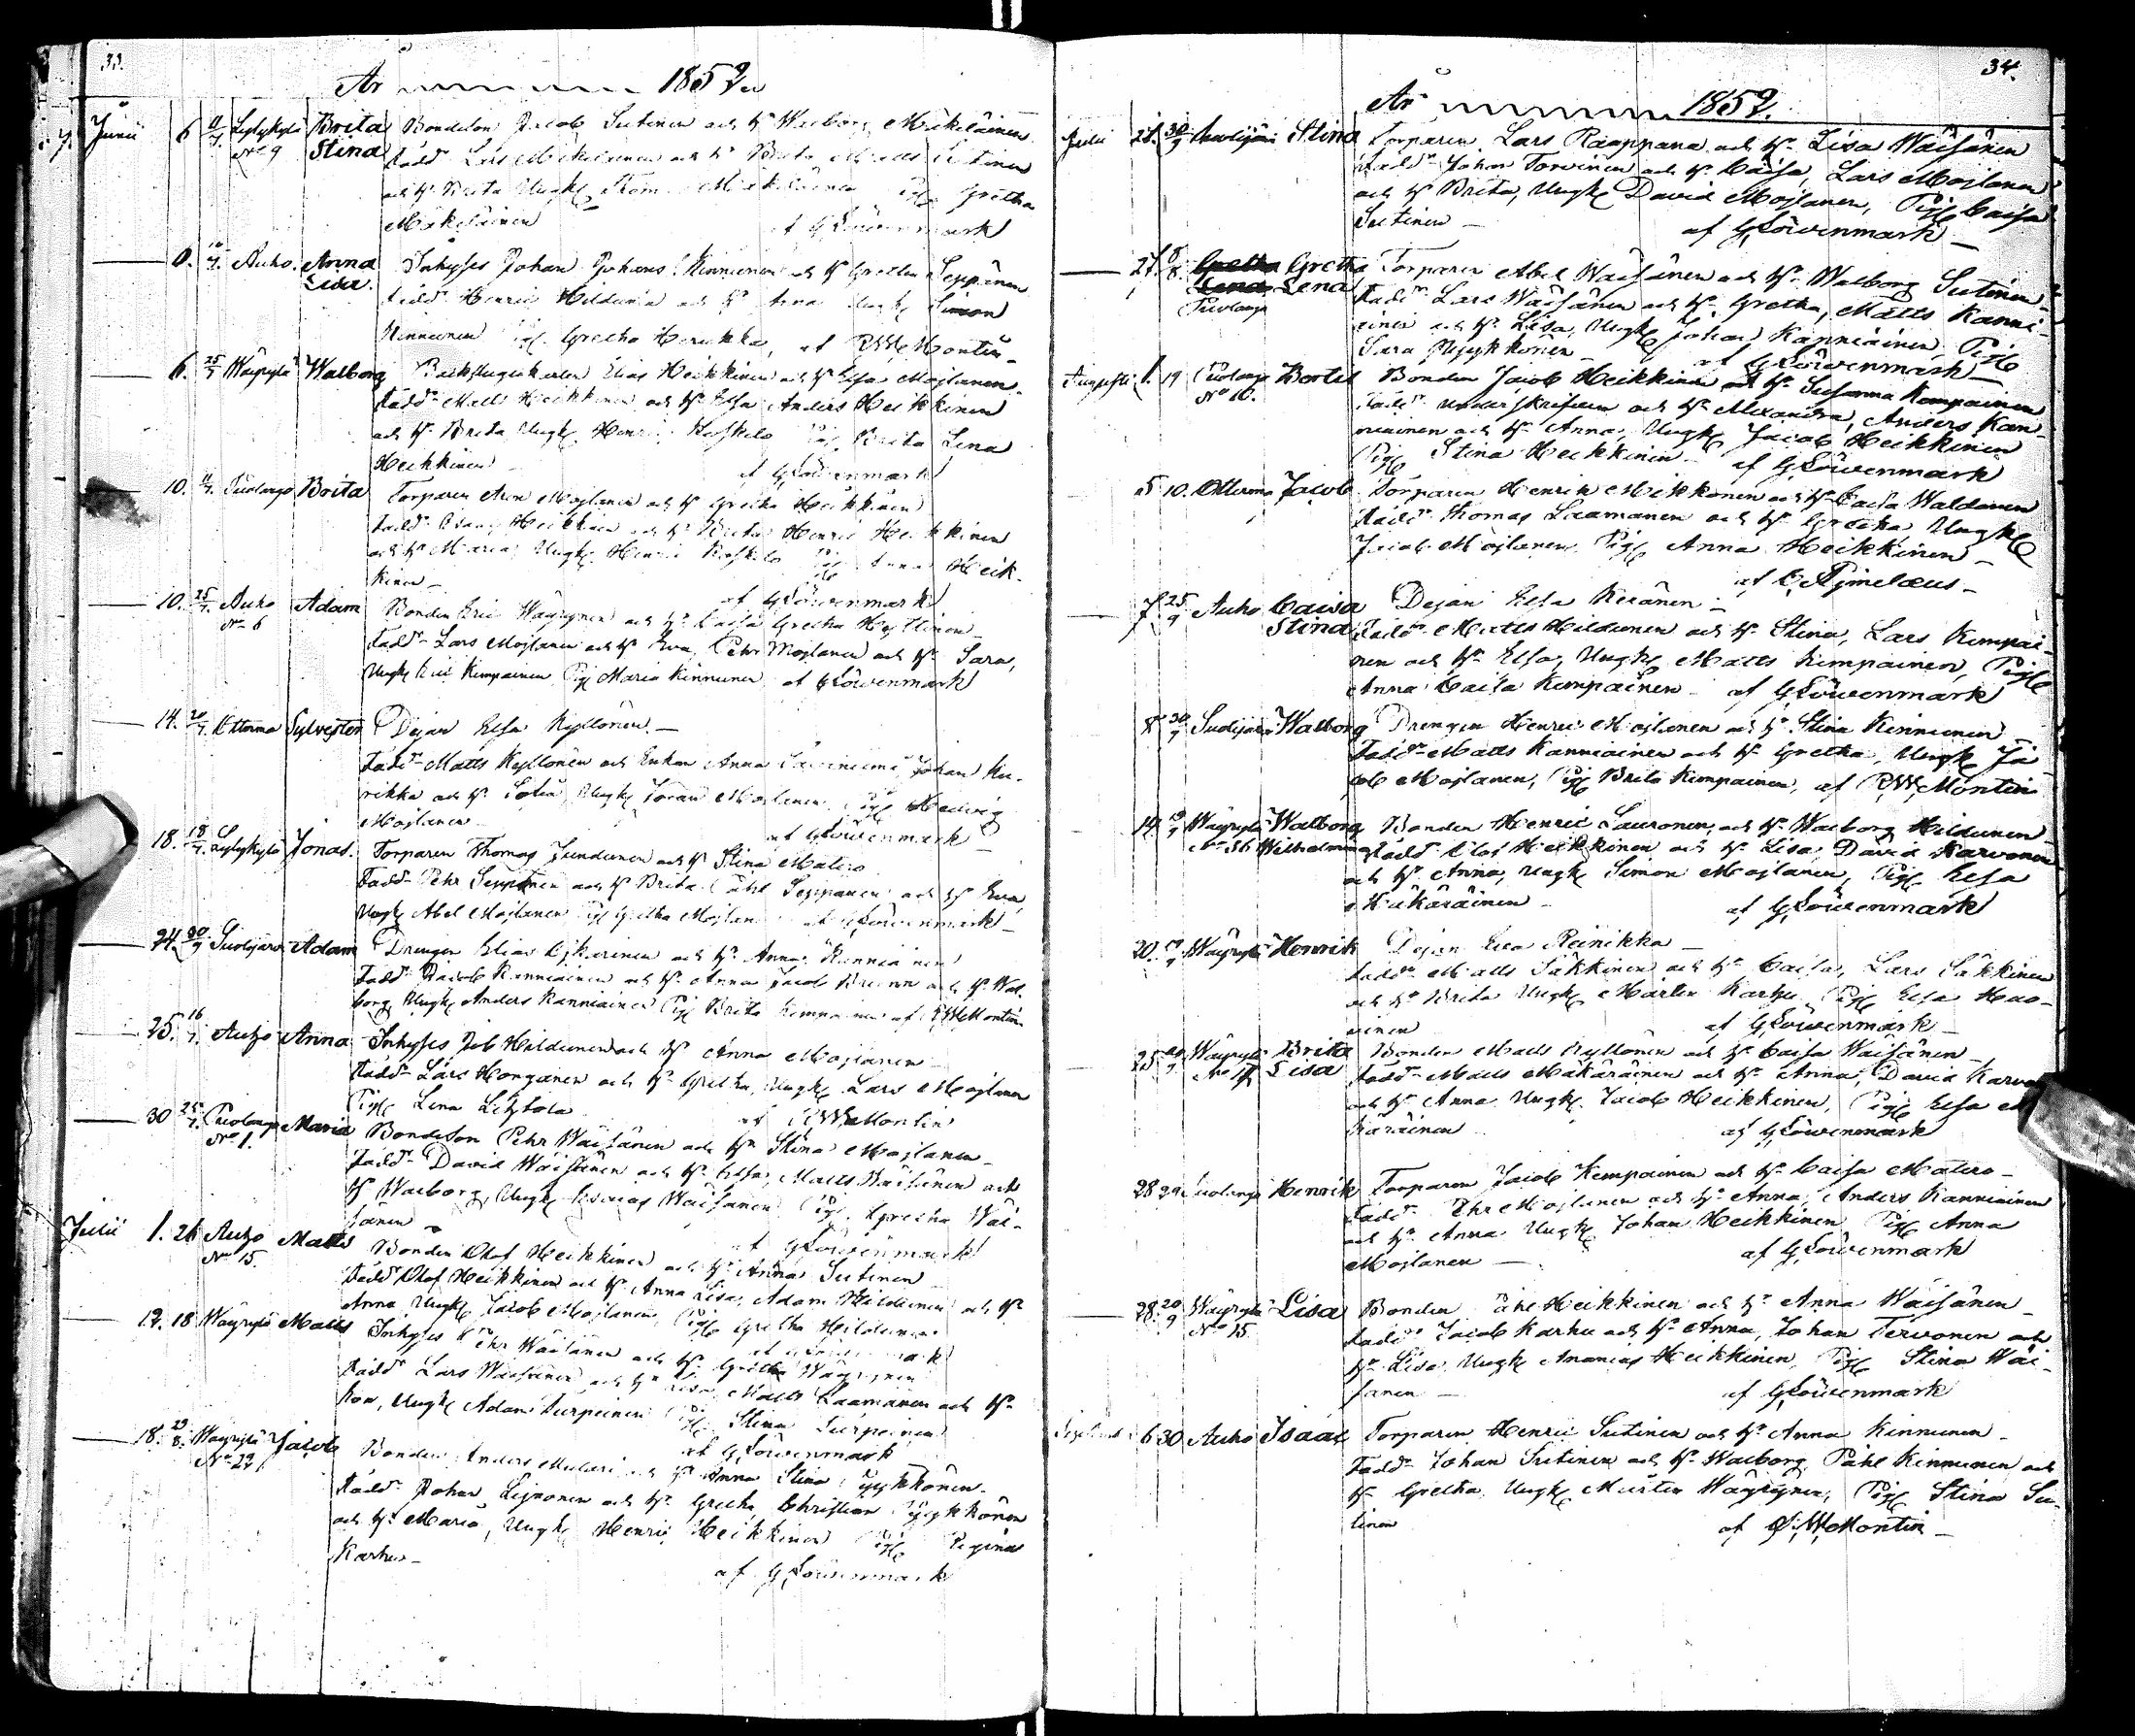 33.
År 1852
Junii 6 11/7 Lylykylä Brita Bondeson Jacob Sutinen och h. Walborg Mikeläinen
No 9 Stina Fadd. Lars Mikelainen och h. Brita Matts Sutinen
och h. Brita Ungk. Thom. Mikeläinen Pig. Gretha
Mäkeläinen af G Löwenmark
6. 10/7. Auho. Anna Inhyses Johan Johans. Kinnunen och h. Gretha Seppänen
Lisa. Fadd. Henric Hildunen och h. Anna Ungk. Simon
Kinnunen Pig. Gretha Heruckka, af RWMontin
6. 25/7 Wäyrylä Walborg Elias Heikkinen och h. Elsa Mojlanen
Fadd. Matts Heikkinen och h. Elsa Anders Heikkinen
och h. Brita Ungk. Henric Pig. Brita Lena
Heikkinen af G Löwenmark
10. 11/7. Puolango Brita Torparen Aron Mojlanen och h. Gretha Heikkinen
Fadd. Esaias Heikkinen och h. Brita Henric Heikkinen
och h. Maria Ungk. Henric Pig. Anna Heik-
kinen af G Löwenmark
10. 25/7. Auho Adam Bonden Eric Wäyrynen och h. Caisa Gretha
No 6 Fadd. Lars Mojlanen och h. Eva, Pehr Mojlanen och h. Sara,
Ungk. Eric Kempainen Pig. Maria Kinnunen af G Löwenmark
14. 20/7. Otterma Sylvester Dejan Elsa Kyllönen.
Fadd. Matts Kyllönen och Enkan Anna Johan Ku-
rikka och h. Ungk. Johan Mojlanen Pig. Hedvig
Mojlanen af G Löwenmark
18. 18/7. Lylykylä Jonas. Torparen Thomas Jundunen och h. Stina Matero
Fadd. Pehr Seppänen och h. Brita Påhl Seppänen och h. Eva,
Ungk. Abel Mojlanen Pig. Gretha Mojlanen af G Löwenmark
24. 30/7 Suolijärvi Adam Drengen Elias och h. Anna Kanniainen
Fadd. Jacob Kanniainen och h. Anna Jacob och h. Wal-
borg Ungk. Anders Kanniainen Pig. Brita Kempainen af RWMontin
25. 16/7. Auho Anna Inhyses Job Hildunen och h. Anna Mojlanen
Fadd. Lars Horganen och h. Gretha, Ungk. Lars Mojlanen
Pig. Lena af RWMontin
30 25/7 Puolango Maria Bondeson Pehr Wäisänen och h. Stina Mojlanen
No 1. Fadd. David Wäisänen och h. Elsa, Matts Wäisänen och
h. Walborg, Ungk. Esaias Wäisänen Pig. Gretha Wäi-
sänen af G Löwenmark
Julii 1. 26 Auho Matts Bonden Olof Heikkinen och h. Anna Sutinen
No 15. Fadd. Olof Heikkinen och h. Anna Lisa, Adam Hildunen och h.
Anna, Ungk. Jacob Mojlanen, Pig. Gretha Hildunen
af G Löwenmark
12. 18 Wäyrylä Matts Inhyses Pehr Wäisänen och h. Gretha Wäyrynen
Fadd. Lars Wäisänen och h. Lisa Matts Laamanen och h.
Ungk. Adam Turpeinen Pig. Stina Turpeinen
af G Löwenmark
18. 23/8. Wäyrylä Jacob Bonden Anders och h. Anna Stina Pyykkönen.
No 27 Fadd. Johan och h. Gretha Christian Pyykkönen
och h. Maria, Ungk. Henric Heikkinen Pig. Regina
Karhu
af G Löwenmark
34.
År 1852.
Julii 21. 30/7 Suolijärvi Stina Torparen Lars Räappana och h. Lisa Wäisänen
Fadd. Johan Torvinen och h. Caisa, Lars Mojlanen
och h. Brita, Ungk. David Mojlanen, Pig. Caisa
Sutinen af G Löwenmark
27. 8/8 Gretha Torparen Abel Wäisänen och h. Walborg Sutinen
Lena Fadd. Lars Wäisänen och h. Gretha, Matts Kanni-
Puolango einen och h. Lisa, Ungk. Johan Kanniainen Pig.
Sara Pyykkönen af G Löwenmark
Augusti 1. 19 Puolango Bertil Bonden Jacob Heikkinen och h. Susanna Kempainen
No 10. Fadd. underskrifvaren och h. Alexandra, Anders Kan-
niainen och h. Anna, Ungk. Jacob Heikkinen
Pig. Stina Heikkinen af G Löwenmark
5 10. Otterma Jacob Torparen Henrik Mikkonen och h. Caisa Waldanen
Fadd. Thomas Laamanen och h. Gretha, Ungk.
Jacob Mojlanen Pig. Anna Heikkinen
af C Ajmelæus
7. 25/9 Auho Caisa Dejan Elsa Keränen
Stina Fadd. Matts Hildunen och h. Stina, Lars Kempai-
nen och h. Elsa, Ungk. Matts Kempainen, Pig.
Anna Caisa Kempainen af G Löwenmark
8 30/9 Suolijärvi Walborg Drengen Henric Mojlanen och h. Stina Kinnunen
Fadd. Matts Kanniainen och h. Gretha, Ungk. Ja-
cob Mojlanen, Pig. Brita Kempainen, af RWMontin
14. Wäyrylä Walborg Bonden Henric Lauronen, och h. Walborg Hildunen
No 36 Wilhelmina Fadd. Olof Heikkinen och h. Lisa, David Karvonen
och h. Anna, Ungk. Simon Mojlanen, Pig. Elsa
Mäkäräinen af G Löwenmark
20. Wäyrylä Henrik Dejan Eva Reinikka
Fadd. Matts Säkkinen och h. Caisa, Lars Säkkinen
och h. Brita Ungk. Martin Karhu Pig. Elsa Huo-
vinen af G Löwenmark
25 Wäyrylä Brita Bonden Matts Kyllönen och h. Caisa Wäisänen
Lisa Fadd. Matts Mäkäräinen och h. Anna, David Karvo
och h. Anna Ungk. Jacob Heikkinen, Pig. Elsa
käräinen af G Löwenmark
28 29 Puolango Henrik Torparen Jacob Kempainen och h. Caisa Matero
Fadd. Pehr Mojlanen och h. Anna, Anders Kanniainen
och h. Anna Ungk. Johan Heikkinen Pig. Anna
Mojlanen af G Löwenmark
28. 20/9 Wäyrylä Lisa Bonden Påhl Heikkinen och h. Anna Wäisänen
No 15 Fadd. Jacob Karhu och h. Anna, Johan Tervonen och
h. Lisa Ungk. Ananias Heikkinen, Pig. Stina Wäi-
sänen af G Löwenmark
6 30 Auho Isaac Torparen Henric Sutinen och h. Anna Kinnunen
Fadd. Johan Sutinen och h. Walborg Påhl Kinnunen och
h. Gretha Ungk. Mårten Wäyrynen, Pig. Stina Su-
tinen af RWMontin